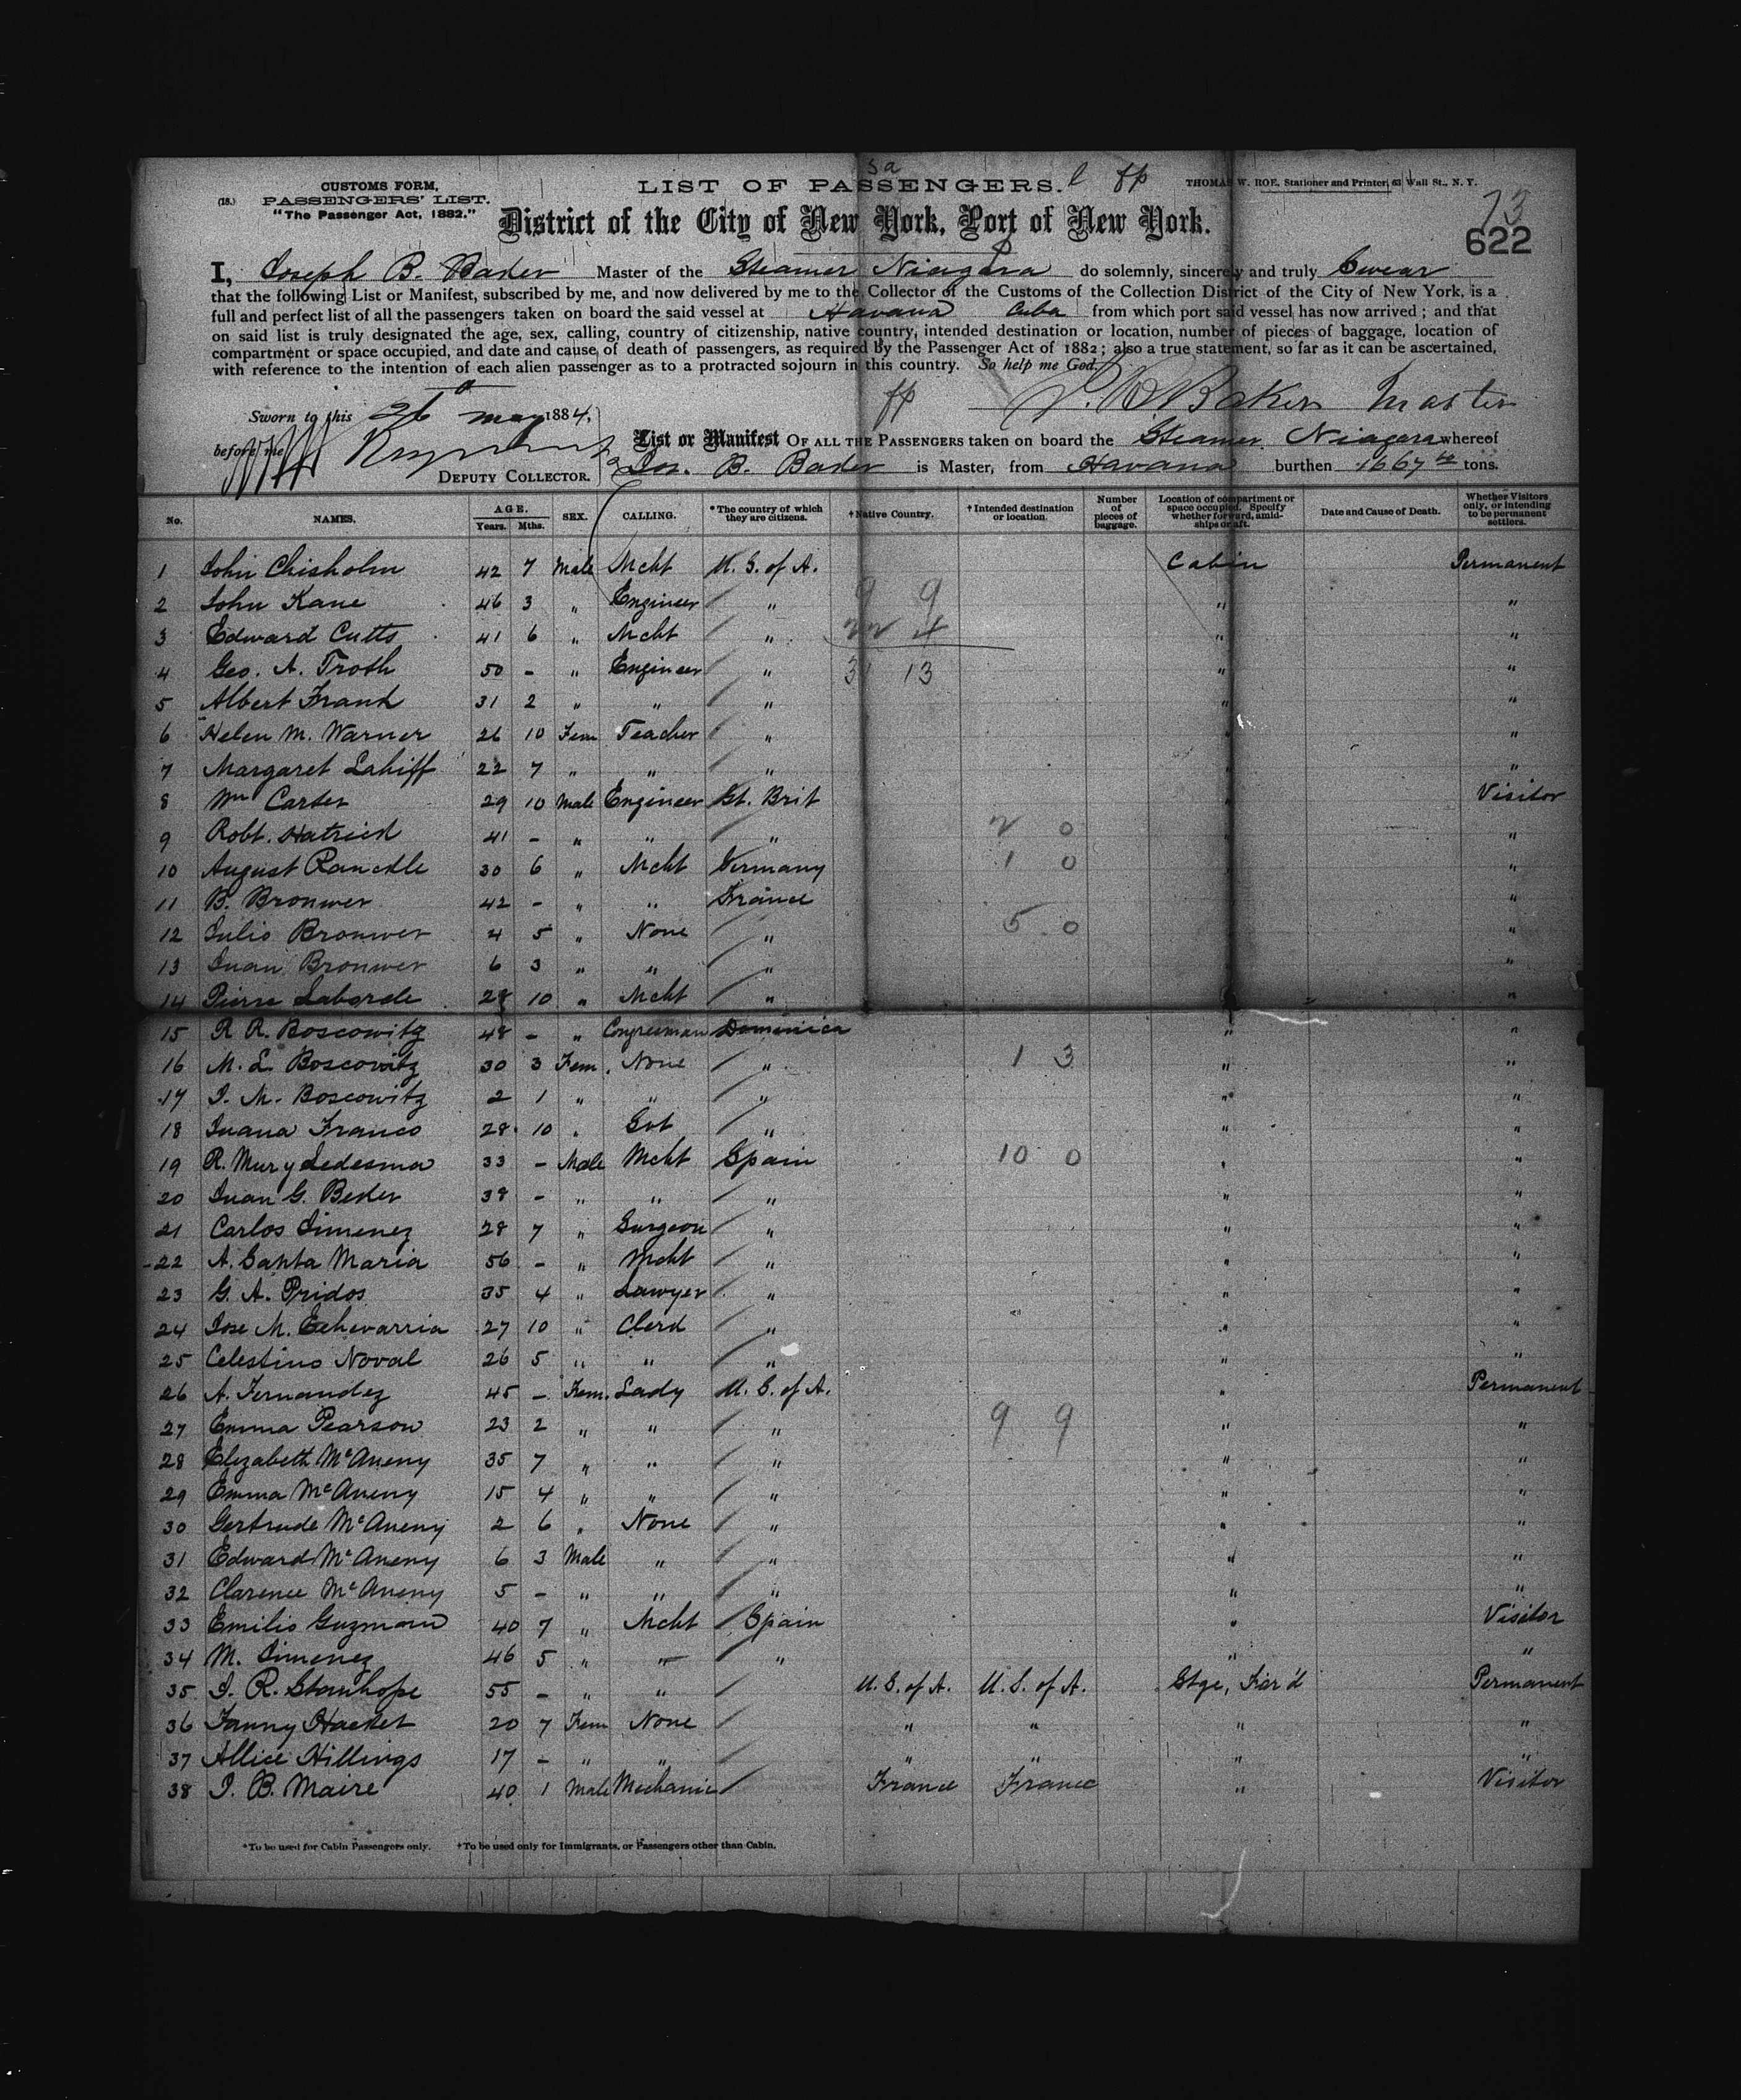 sa
(18.) CUSTOMS FORM, PASSENGERS' LIST. "The Passenger Act, 1882."
LIST OF PASSENGERS.
THOMAS W. ROE, Stationer and Printer, 63 Wall St., N. Y.
73
622
District of the City of New York, Port of New York.
I, Joseph B. Baker Master of the Steamer Niagara do solemnly, sincerely and truly Swear
that the following List or Manifest, subscribed by me, and now delivered by me to the Collector of the Customs of the Collection District of the City of New York, is a
full and perfect list of all the passengers taken on board the said vessel at Havana Cuba from which port said vessel has now arrived; and that
on said list is truly designated the age, sex, calling, country of citizenship, native country, intended destination or location, number of pieces of baggage, location of
compartment or space occupied, and date and cause of death of passengers, as required by the Passenger Act of 1882; also a true statement, so far as it can be ascertained,
with reference to the intention of each alien passenger as to a protracted sojourn in this country. So help me God.
J. B. Baker Master
Sworn to this 26th May 1884,
before me
DEPUTY COLLECTOR.
List or Manifest OF ALL THE PASSENGERS taken on board the Steamer Niagara whereof
Jos. B. Baker is Master, from Havana burthen 1667 tons.
No. NAMES. AGE. Years. Mths. SEX. CALLING. *The country of which they are citizens. †Native Country. †Intended destination or location. Number of pieces of baggage. Location of compartment or space occupied. Specify whether forward, amidships or aft. Date and Cause of Death. Whether Visitors only, or intending to be permanent settlers.
1 John Chisholm 42 7 Male Mcht U. S. of A. Cabin Permanent
2 John Kane 46 3 " Engineer " 9 9 " "
3 Edward Cutts 41 6 " Mcht " 22 4 " "
4 Geo. A. Troth 50 - " Engineer " 31 13 " "
5 Albert Frank 31 2 " " " " "
6 Helen M. Warner 26 10 Fem Teacher " " "
7 Margaret Lahiff 22 7 " " " " "
8 Wm Carter 29 10 Male Engineer Gt. Brit " Visitor
9 Robt. Hatrick 41 - " " " 2 0 " "
10 August 30 6 " Mcht Germany 1 0 " "
11 B. Bronwer 42 - " " France " "
12 Julio Bronwer 4 5 " None " 5 0 " "
13 Juan Bronwer 6 3 " " " " "
14 Pierre Laborde 28 10 " Mcht " " "
15 R. R. Boscowitz 48 - " Congressman Dominica " "
16 M. L. Boscowitz 30 3 Fem. None " 1 3 " "
17 J. M. Boscowitz 2 1 " " " " "
18 Juana Franco 28 10 " Svt " " "
19 R. Mur y Ledesma 33 - Male Mcht Spain 10 0 " "
20 Juan G. Beker 38 - " " " " "
21 Carlos Jimenez 28 7 " Surgeon " " "
22 A. Santa Maria 56 - " Mcht " " "
23 G. A. Pridos 35 4 " Lawyer " " "
24 Jose M. Echevarria 27 10 " Clerk " " "
25 Celestino Noval 26 5 " " " " "
26 A. Fernandez 45 - Fem. Lady U. S. of A. " Permanent
27 Emma Pearson 23 2 " " " 9 9 " "
28 Elizabeth McAneny 35 7 " " " " "
29 Emma McAneny 15 4 " " " " "
30 Gertrude McAneny 2 6 " None " " "
31 Edward McAneny 6 3 Male " " " "
32 Clarence McAneny 5 - " " " " "
33 Emilio Guzman 40 7 " Mcht Spain " Visitor
34 M. Jimenez 46 5 " " " " "
35 J. R. Stanhope 55 - " " U. S. of A. U. S. of A. Stge, For'd Permanent
36 Fanny Hacket 20 7 Fem None " " " "
37 Allice Hillings 17 - " " " " " "
38 J. B. Maire 40 1 Male Mechanic France France " Visitor
*To be used for Cabin Passengers only. †To be used only for Immigrants, or Passengers other than Cabin.